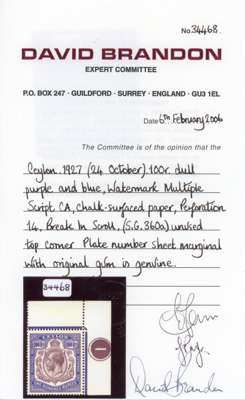 No. 34468
DAVID BRANDON
EXPERT COMMITTEE
P.O. BOX 247 · GUILDFORD · SURREY · ENGLAND · GU3 1EL
Date 6th February 2006
The Committee is of the opinion that the
Ceylon. 1927 (24 October) 100r. dull
purple and blue, Watermark Multiple
Script CA, chalk-surfaced paper, Perforation
14, Break In Scroll, (S.G. 360a) unused
top corner Plate number sheet marginal
with original gum is genuine.
34468
1
David Brandon